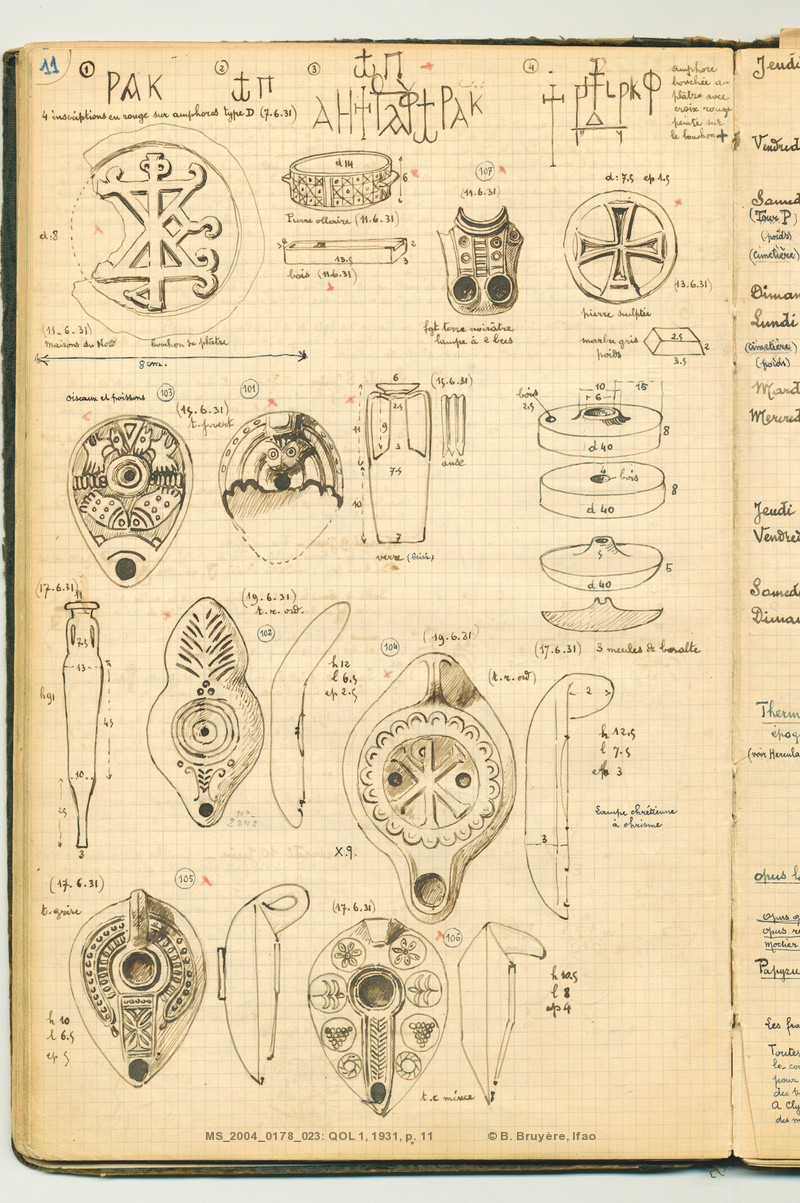 11
① ΡΑΚ
②
③
ΡΑΚ
④
4 inscriptions en rouge sur amphores type D (7.6.31)
amphore
bouchée au
plâtre avec
croix rouge
peinte sur
le bouchon
d:8
(11_6_31)
Maisons du Nord bouchon de plâtre
8cm.
d14
6
Pierre ollaire (11.6.31)
3
13.5
2
3
bois (11.6.31)
107
(11.6.31)
fgt terre noirâtre
lampe à 2 becs
d: 7.5 ep 1.5
(13.6.31)
pierre sculptée
marbre gris
poids
2.5
2
3.5
oiseaux et poissons
103
(15.6.31)
101
6
2.5
11
9
3
7.5
10
7
verre (brisé)
(15.6.31)
anse
bois
2.5
10
6
15
8
d 40
4
bois
8
d 40
5
5
d 40
(17.6.31) 3 meules de basalte
(17.6.31)
11
7.5
13
h91
45
10
25
3
(19.6.31)
t.r. ord.
102
h 12
l 6.5
ep 2.5
104
(19.6.31)
(t.r. ord)
2
h 12.5
l 7.5
ep 3
3
Lampe chrétienne
à chrisme
X.9.
(17.6.31)
105
t. grise
h 10
l 6.5
ep 5
(17.6.31)
106
h 10.5
l 8
ep 4
t.r mince
Jeudi
Vendredi
Samed
(Tour P)
(poids)
(cimetière)
Diman
Lundi
(cimetière)
(poids)
Mard
Mercred
Jeudi
Vendredi
Samed
Diman
Therm
épog
(voir Hercula
opus l
opus
opus re
mortier
Papyru
Les fra
Toutes
le co
pour
des
A Cly
des m
MS_2004_0178_023: QOL 1, 1931, p. 11 © B. Bruyère, Ifao